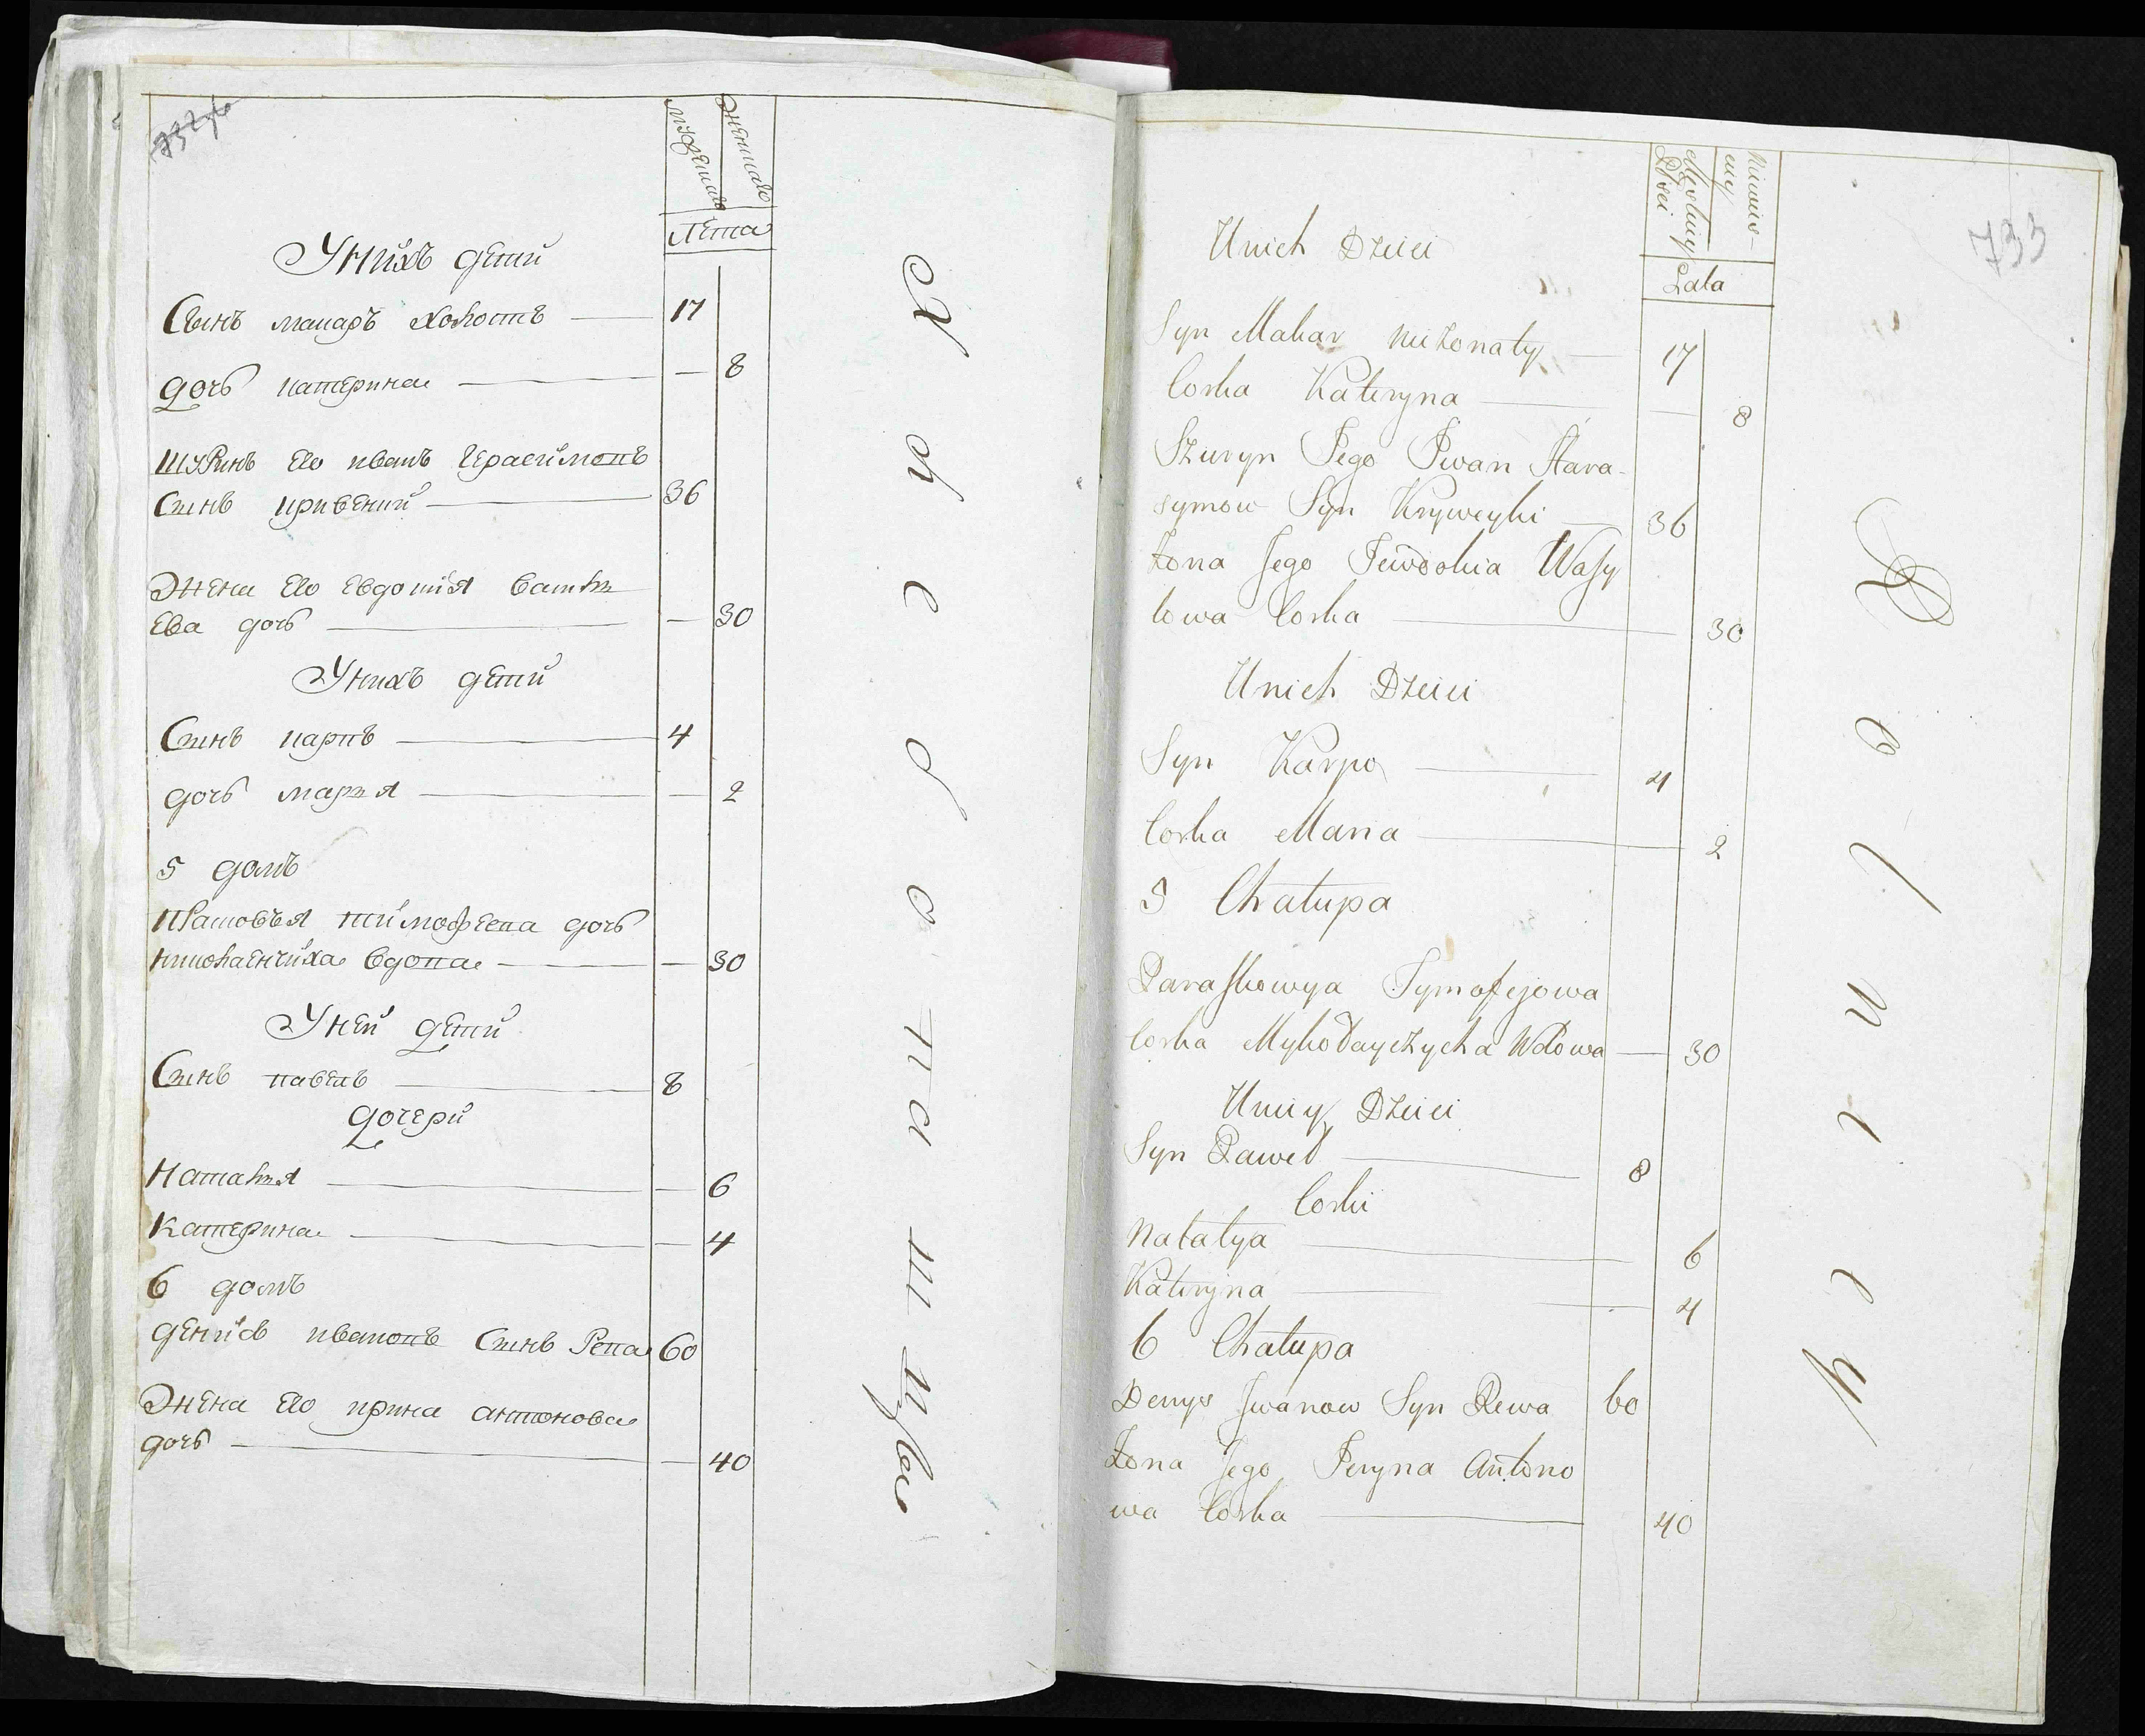 732об
мужеска
женска
Лѣта
Унихъ дети
Сынъ макаръ холостъ 17
дочь катерина — 8
шуринъ его иванъ Герасимовъ
Сынъ кривенкий 36
Жена его Евдокия василь
ева дочь — 30
Унихъ дети
Сынъ карпъ 4
дочь мария — 2
5 домъ
Прасковья тимофеева дочь
николаенчиха вдова — 30
Уней дети
Сынъ павелъ 8
дочери
Наталия — 6
Катерина — 4
6 домъ
денисъ ивановъ Сынъ Рева 60
Жена его ирина антонова
дочь — 40
733
Lata
Unich Dzieci
Syn Makar nieżonaty — 17
Corka Kateryna — 8
Szuryn Jego Iwan Hara-
symow Syn Kryweyki — 36
Żona Jego Jewdokia Wasy
lowa Corka — 30
Unich Dzieci
Syn Karpo — 4
Corka Maria — 2
5 Chałupa
Paraskowya Tymofejowa
Corka Mykołayczycha Wdowa — 30
Uniey Dzieci
Syn Paweł — 8
Corki
Natalya — 6
Kateryna — 4
6 Chałupa
Denys Iwanow Syn Rewa 60
Żona Jego Jeryna Antono
wa Corka — 40